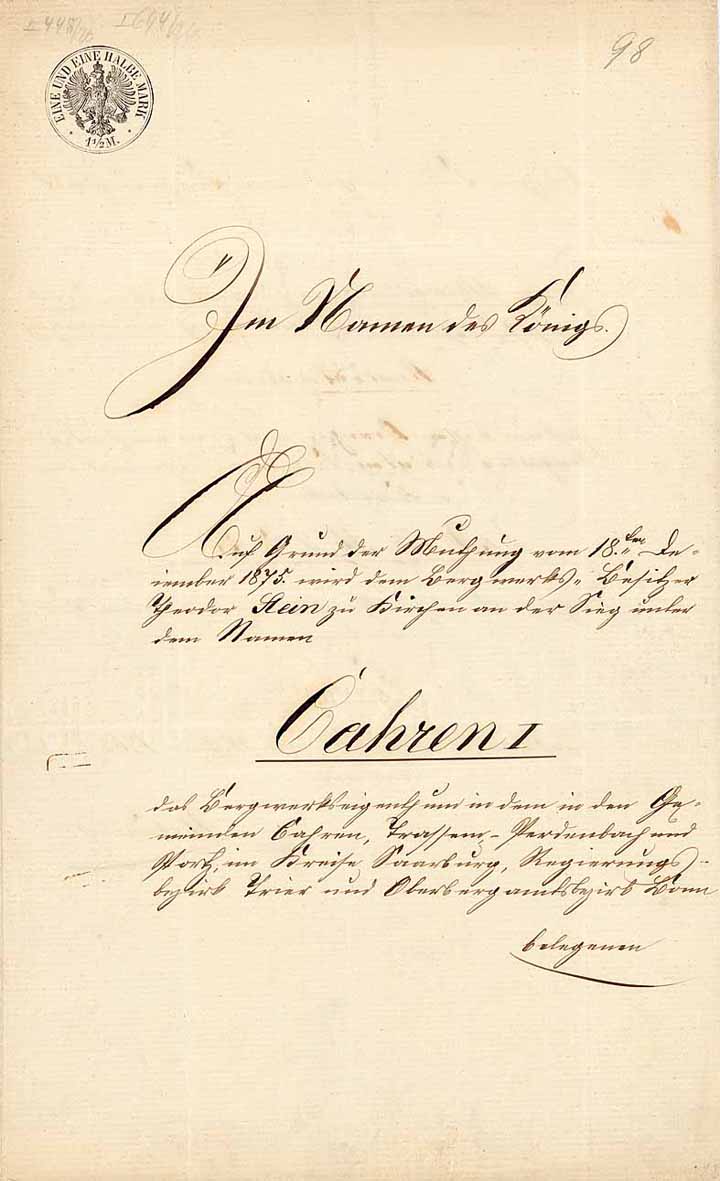 98
EINE UND EINE HALBE MARK
1 1/2 M.
Im Namen des Königs.
Auf Grund der Muthung vom 18.ten De-
zember 1875. wird dem Bergwerks-Besitzer
Theodor Stein zu Kirchen an der Sieg unter
dem Namen
Cahren I
das Bergwerkseigenthum in dem in den Ge-
meinden Cahren, Trassem-Perdenbach und
Portz, im Kreise Saarburg, Regierungs-
bezirk Trier und Oberbergamtsbezirk Bonn
belegenen